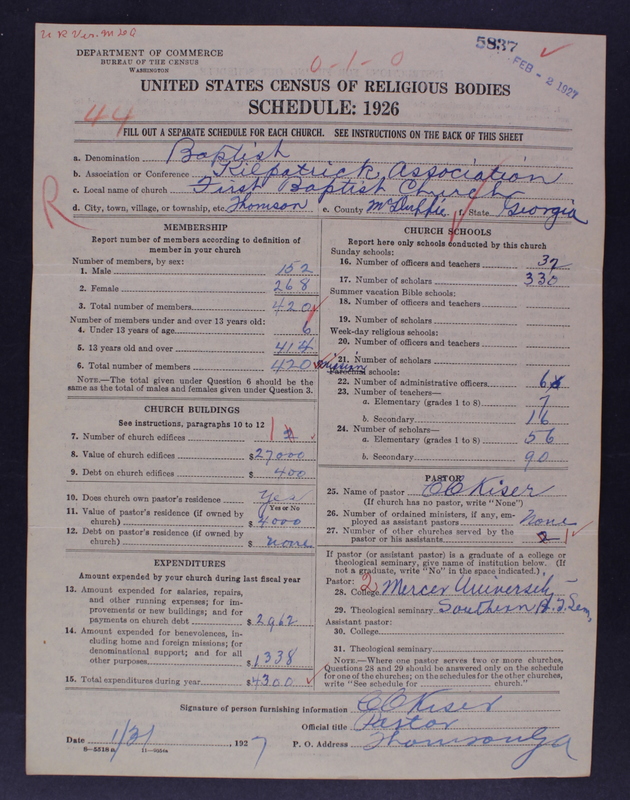 U R Ver. M L G
DEPARTMENT OF COMMERCE
BUREAU OF THE CENSUS
WASHINGTON
5837
FEB - 2 1927
0-1-0
UNITED STATES CENSUS OF RELIGIOUS BODIES
SCHEDULE: 1926
44
FILL OUT A SEPARATE SCHEDULE FOR EACH CHURCH. SEE INSTRUCTIONS ON THE BACK OF THIS SHEET
a. Denomination Baptist
b. Association or Conference Kilpatrick Association
c. Local name of church First Baptist Church
R
d. City, town, village, or township, etc. Thomson e. County McDuffie f. State Georgia
MEMBERSHIP
Report number of members according to definition of
member in your church
Number of members, by sex:
1. Male 152
2. Female 268
3. Total number of members 420
Number of members under and over 13 years old:
4. Under 13 years of age 6
5. 13 years old and over 414
6. Total number of members 420
NOTE.—The total given under Question 6 should be the
same as the total of males and females given under Question 3.
CHURCH BUILDINGS
See instructions, paragraphs 10 to 12
7. Number of church edifices 1
8. Value of church edifices $27000
9. Debt on church edifices $400
10. Does church own pastor's residence Yes
Yes or No
11. Value of pastor's residence (if owned by
church) $4000
12. Debt on pastor's residence (if owned by
church) $none
EXPENDITURES
Amount expended by your church during last fiscal year
13. Amount expended for salaries, repairs,
and other running expenses; for im-
provements or new buildings; and for
payments on church debt $2962
14. Amount expended for benevolences, in-
cluding home and foreign missions; for
denominational support; and for all
other purposes $1338
15. Total expenditures during year $4300
CHURCH SCHOOLS
Report here only schools conducted by this church
Sunday schools:
16. Number of officers and teachers 32
17. Number of scholars 330
Summer vacation Bible schools:
18. Number of officers and teachers
19. Number of scholars
Week-day religious schools:
20. Number of officers and teachers
21. Number of scholars
Parochial schools:
22. Number of administrative officers 6
23. Number of teachers—
a. Elementary (grades 1 to 8) 7
b. Secondary 16
24. Number of scholars—
a. Elementary (grades 1 to 8) 56
b. Secondary 90
PASTOR
25. Name of pastor C C Kiser
(If church has no pastor, write "None")
26. Number of ordained ministers, if any, em-
ployed as assistant pastors None
27. Number of other churches served by the
pastor or his assistants 2 1
If pastor (or assistant pastor) is a graduate of a college or
theological seminary, give name of institution below. (If
not a graduate, write "No" in the space indicated.)
Pastor: 2
28. College Mercer University
29. Theological seminary Southern B. T. Sem.
Assistant pastor:
30. College
31. Theological seminary
NOTE.—Where one pastor serves two or more churches,
Questions 28 and 29 should be answered only on the schedule
for one of the churches; on the schedules for the other churches,
write "See schedule for church."
Signature of person furnishing information C C Kiser
Official title Pastor
Date 1/31, 1927 P. O. Address Thomson Ga
8-5518 a 11-9554a